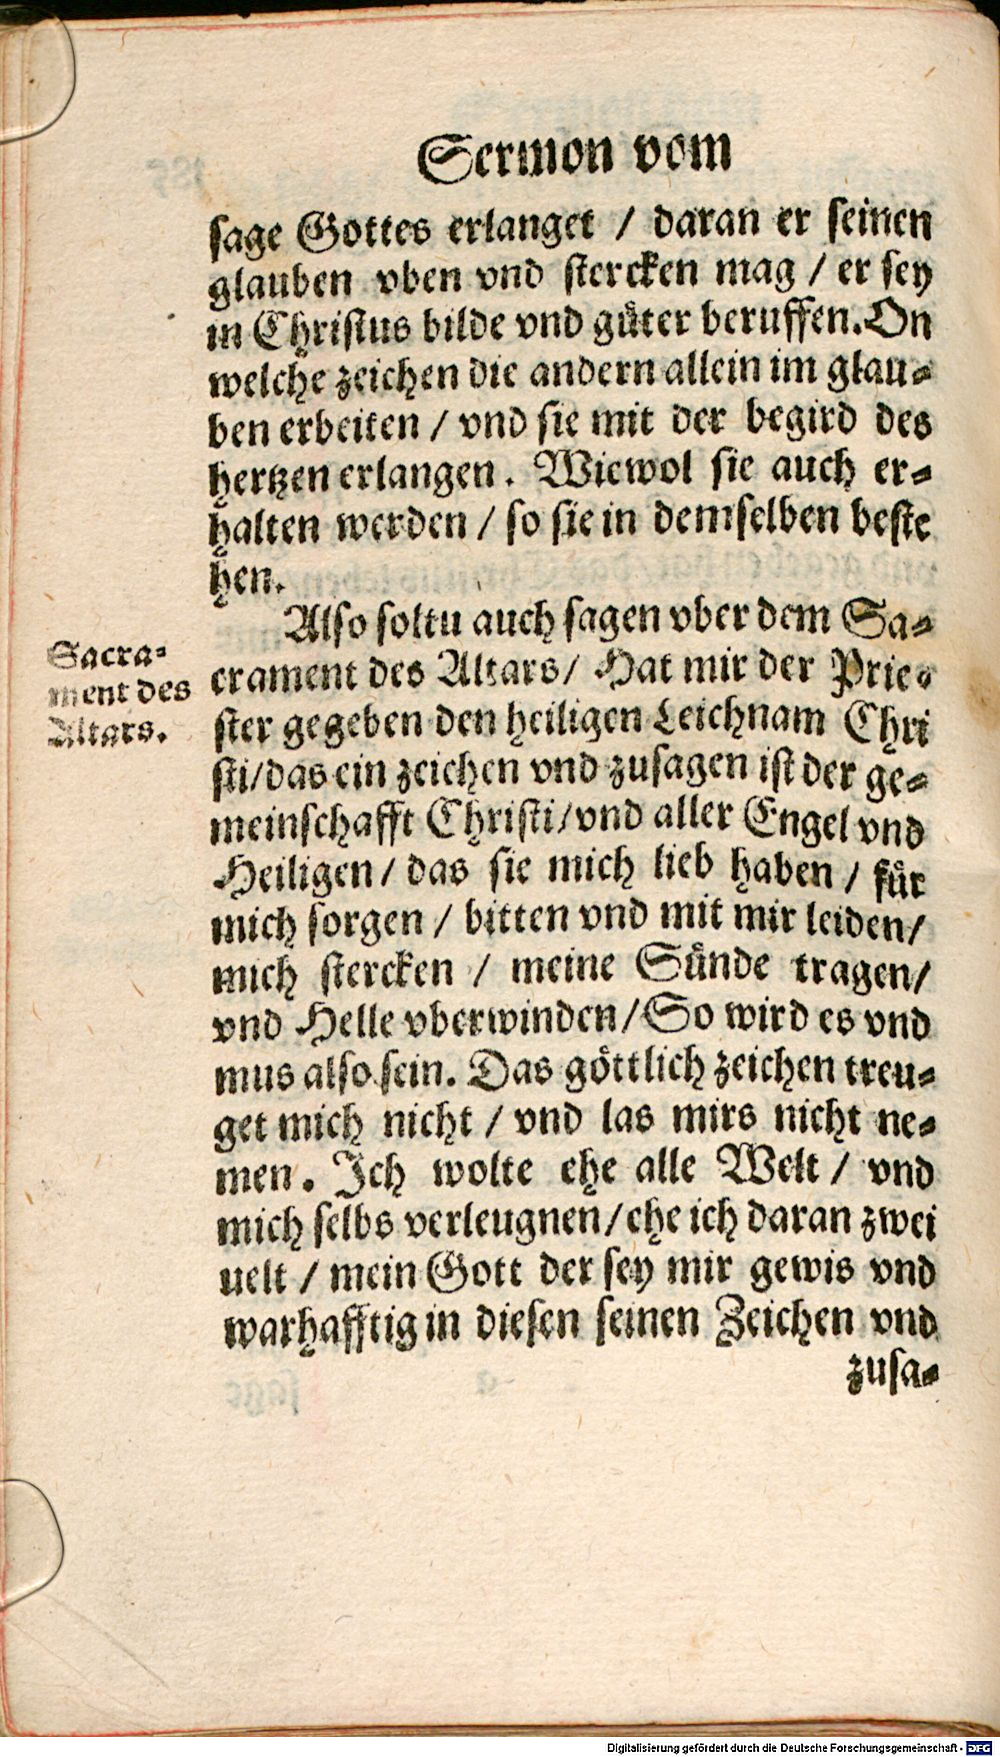 Sermon vom
sage Gottes erlanget / daran er seinen
glauben vben vnd stercken mag / er sey
in Christus bilde vnd güter beruffen. On
welche zeichen die andern allein im glau-
ben erbeiten / vnd sie mit der begird des
hertzen erlangen. Wiewol sie auch er-
halten werden / so sie in demselben beste
hen.
Also soltu auch sagen vber dem Sa-
Sacra-
ment des
Altars.
crament des Altars / Hat mir der Prie-
ster gegeben den heiligen Leichnam Chri
sti / das ein zeichen vnd zusagen ist der ge-
meinschafft Christi / vnd aller Engel vnd
Heiligen / das sie mich lieb haben / für
mich sorgen / bitten vnd mit mir leiden /
mich stercken / meine Sünde tragen /
vnd Helle vberwinden / So wird es vnd
mus also sein. Das göttlich zeichen treu-
get mich nicht / vnd las mirs nicht ne-
men. Ich wolte ehe alle Welt / vnd
mich selbs verleugnen / ehe ich daran zwei
uelt / mein Gott der sey mir gewis vnd
warhafftig in diesen seinen Zeichen vnd
zusa-
Digitalisierung gefördert durch die Deutsche Forschungsgemeinschaft - DFG